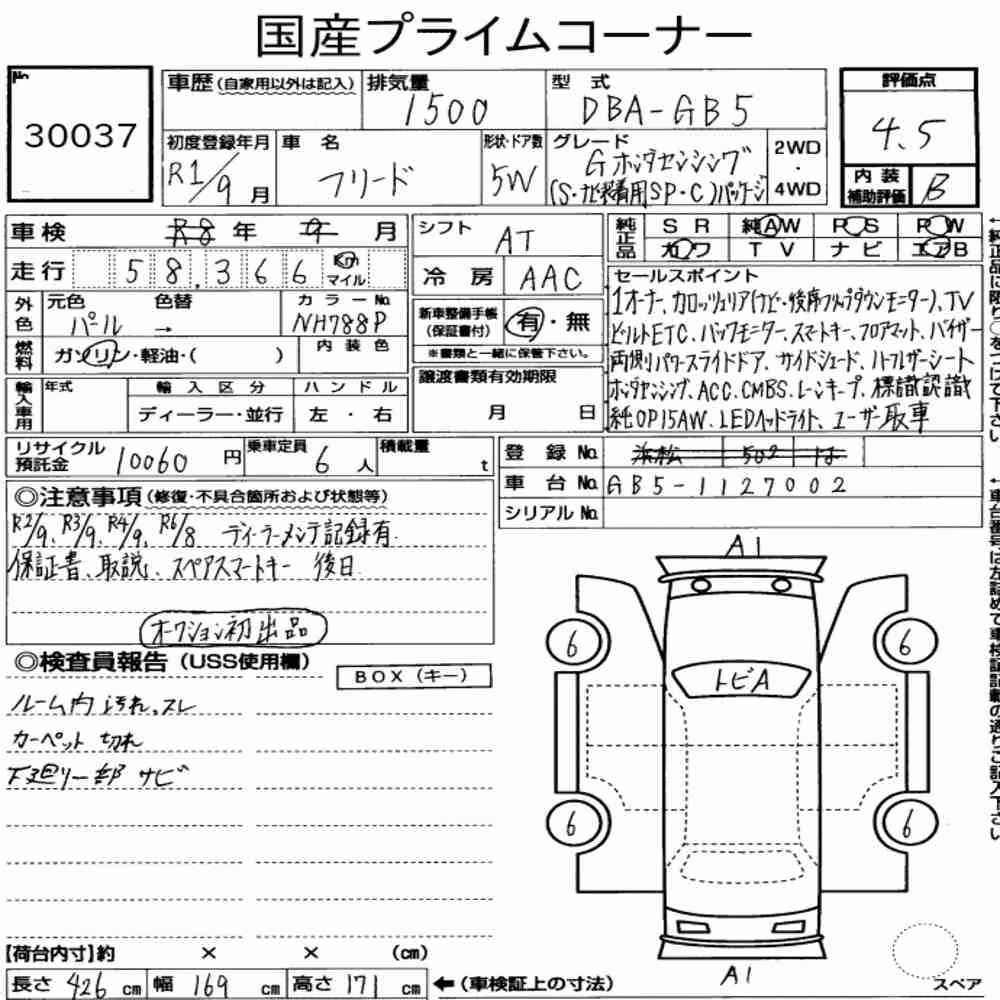 国産プライムコーナー
No
30037
車歴(自家用以外は記入)
排気量
1500
型 式
DBA-GB5
評価点
4.5
初度登録年月
R1/9 月
車 名
フリード
形状・ドア数
5W
グレード
Gホンダセンシング
(S・ナビ装着用SP・C)パッケージ
2WD
・
4WD
内装
補助評価
B
車検
R8 年 9 月
シフト
AT
純正品
SR
純AW
PS
PW
カワ
TV
ナビ
エアB
走行
58,366
Km
マイル
冷房
AAC
セールスポイント
1オーナ、カロッツェリア(ナビ・後席フリップダウンモニター)、TV
ビルトETC、バックモニター、スマートキー、フロアマット、バイザー
両側パワースライドドア、サイドシェード、ハーフレザーシート
ホンダセンシング、ACC、CMBS、レーンキープ、標識認識
純OP15AW、LEDヘッドライト、ユーザー取車
外色
元色
パール
色替
→
カラーNo.
NH788P
新車整備手帳
(保証書付)
有・無
※書類と一緒に保管下さい。
燃料
ガソリン・軽油・( )
内装色
輸入車用
年式
輸入区分
ディーラー・並行
ハンドル
左・右
譲渡書類有効期限
月 日
リサイクル
預託金
10060 円
乗車定員
6 人
積載量
t
登録No.
浜松 502 は
車台No.
GB5-1127002
シリアルNo.
◎注意事項(修復・不具合箇所および状態等)
R2/9、R3/9、R4/9、R6/8 ディーラーメンテ記録有
保証書、取説、スペアスマートキー 後日
オークション初出品
◎検査員報告(USS使用欄)
BOX(キー)
ルーム内 汚れ、スレ
カーペット 切れ
下廻り一部 サビ
A1
6
6
トビA
6
6
A1
スペア
【荷台内寸】約 × × (cm)
長さ 426 cm
幅 169 cm
高さ 171 cm
←(車検証上の寸法)